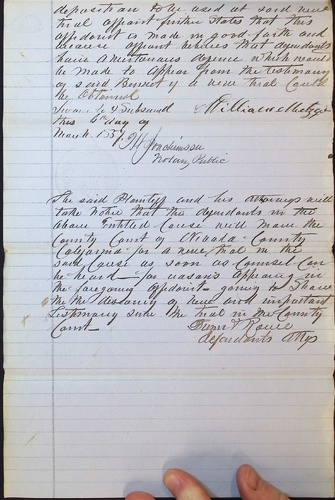 deposition to be used at said new
trial affiant further states that this
affidavit is made in good faith and
because affiant believes that defendants
have a meritorious defence which would
be made to appear from the testimony
of said Bennett if a new trial could
be obtained
Sworn to & Subscribed
this 6th day of
March 185
Notary Public
The said Plaintiff and his Attorneys will
take notice that the defendants in the
above Entitled Cause will move the
County Court of Nevada County
California for a new trial in the
said Cause as soon as Counsel can
be heard for reasons appearing in
the foregoing affidavit going to Show
the discovery of new and important
Testimony since the trial in the County
Court
defendants Attys